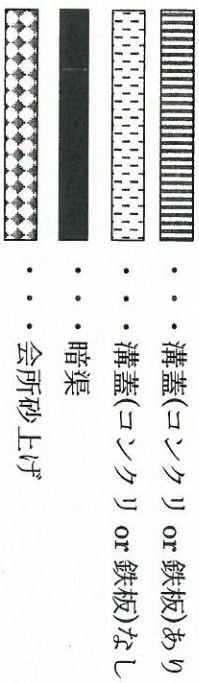 ・・・溝蓋(コンクリ or 鉄板)あり
・・・溝蓋(コンクリ or 鉄板)なし
・・・暗渠
・・・会所砂上げ